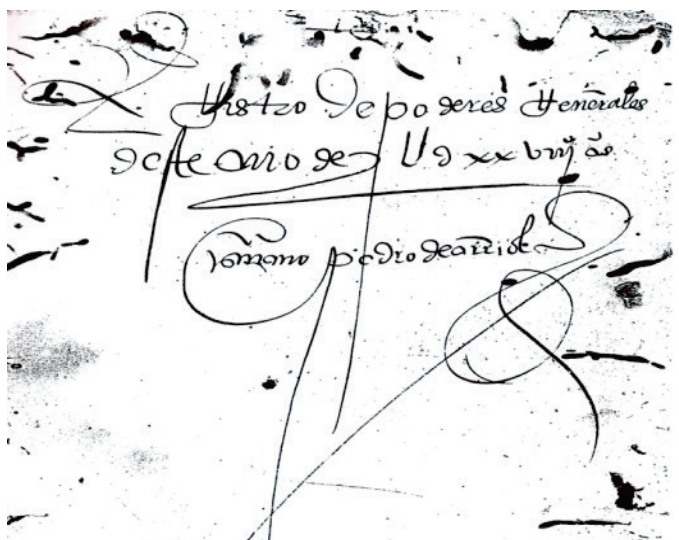 Registro De poderes Generales
deste Año de U d xx biij años
escrivano pedro de arriola